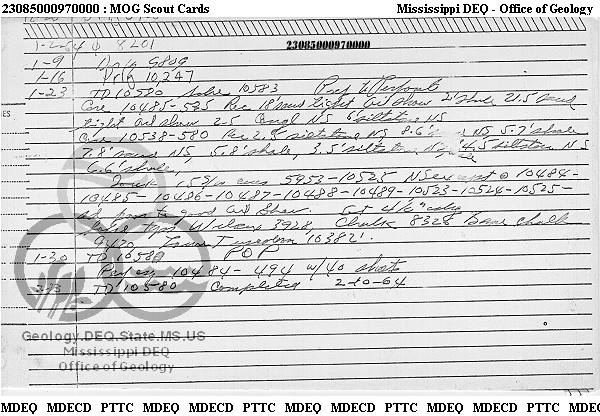 23085000970000 : MOG Scout Cards Mississippi DEQ - Office of Geology
23085000970000
1-2-64 8201
1-9 Drlg 9809
1-16 Drlg 10,247
1-23 TD 10580 Prep to Perforate
Core 10485-535 Rec 18' sand tight oil show 2' shale 21.5 sand
tight oil show 2.5 Congl NS 6' siltstone NS
Core 10538-580 Rec siltstone NS 8.6' NS 5.7' shale
7.8' sand NS, 5.8' shale, 3.5' siltstone 4.5 siltstone NS
6.6' shale,
cores 5953-10525 NS except @ 10484-
10485-10486-10487-10488-10489-10523-10524-10525-
all poor to good oil show. Set 4½" csg
Tops Wilcox 3928, Chalk 8328 base chalk
9470 Lower Tuscaloosa 10382'.
1-30 TD 10580 POP
Perf csg 10484-494 w/40 shots
3-3 TD 10580 Completed 2-10-64
Geology.DEQ.State.MS.US
Mississippi DEQ
Office of Geology
MDEQ MDECD PTTC MDEQ MDECD PTTC MDEQ MDECD PTTC MDEQ MDECD PTTC MDEQ